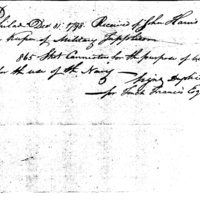 Philad Dec 11. 1798. Received of John Harris
Keeper of Military Supplies
865 Shot Cannisters for the purpose of
for the use of the Navy
for Tench Francis Esq